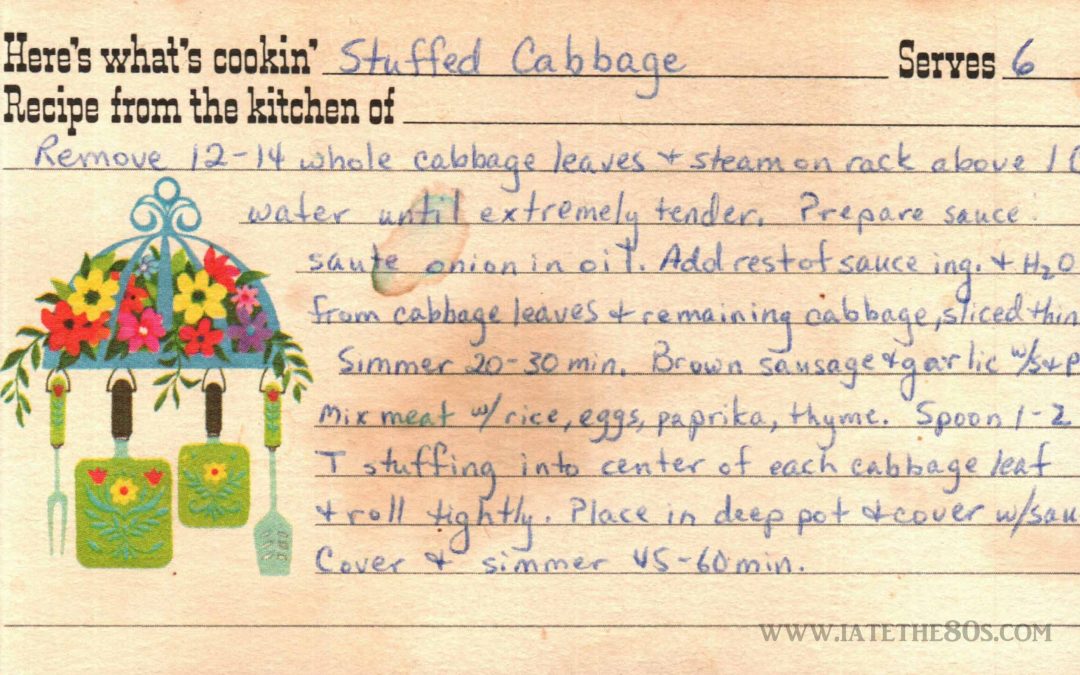 Here's what's cookin' Stuffed Cabbage Serves 6
Recipe from the kitchen of
Remove 12-14 whole cabbage leaves & steam on rack above 1
water until extremely tender. Prepare sauce:
saute onion in oil. Add rest of sauce ing. & H₂O
from cabbage leaves & remaining cabbage, sliced thin
Simmer 20-30 min. Brown sausage & garlic w/s&p
Mix meat w/ rice, eggs, paprika, thyme. Spoon 1-2
T stuffing into center of each cabbage leaf
& roll tightly. Place in deep pot & cover w/sau
Cover & simmer 45-60 min.
WWW.IATETHE80S.COM